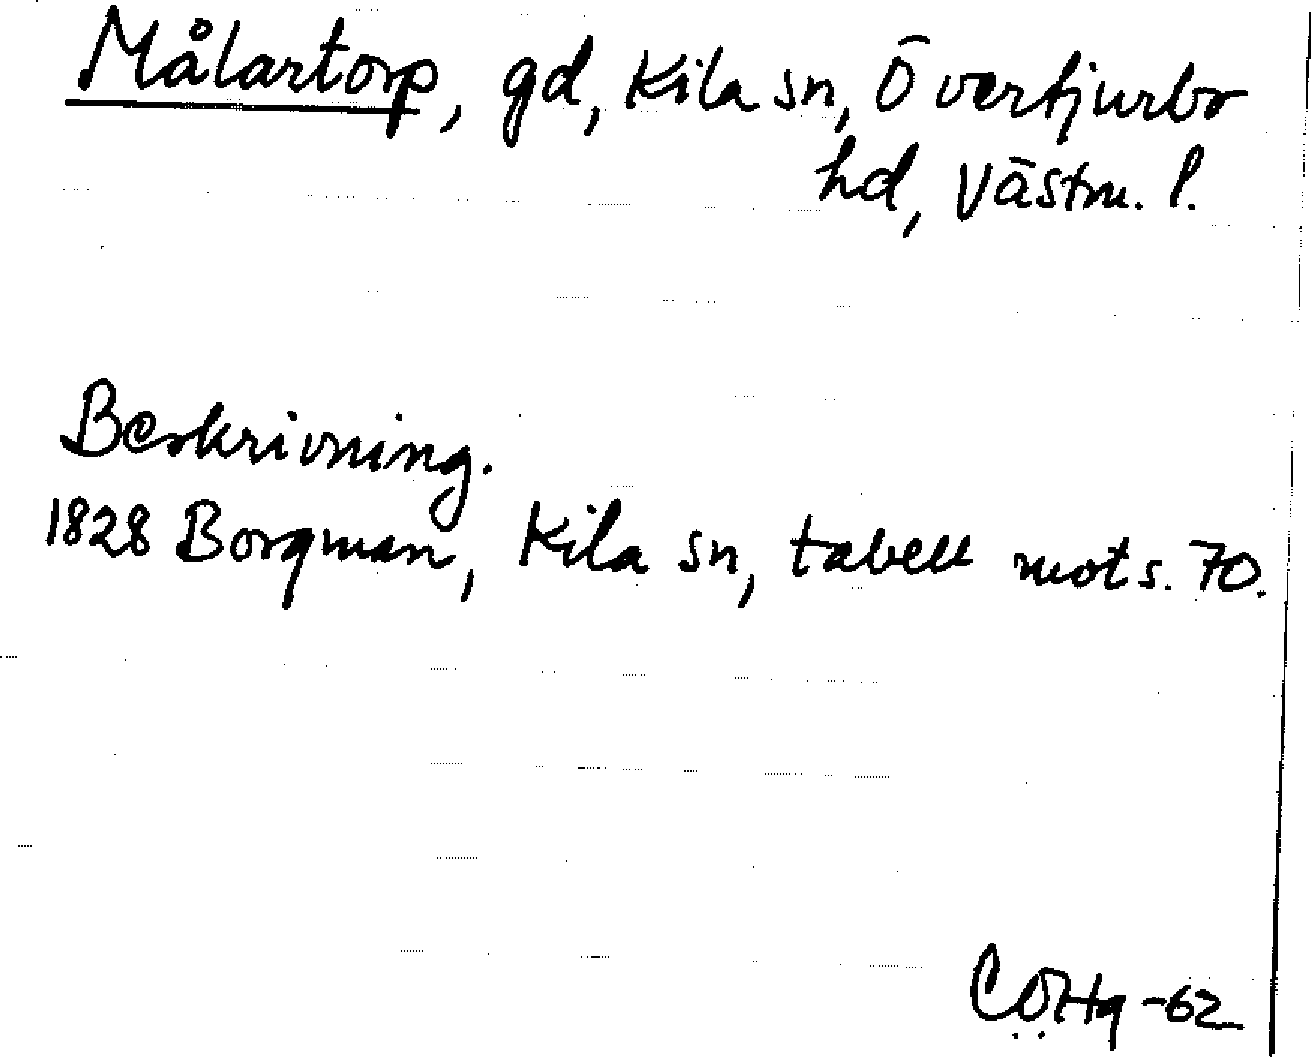 Målartorp, gd, Kila sn, Övertjurbo
hd, Västm. l.
Beskrivning.
1828 Borgman, Kila sn, tabell mot s. 70.
-62